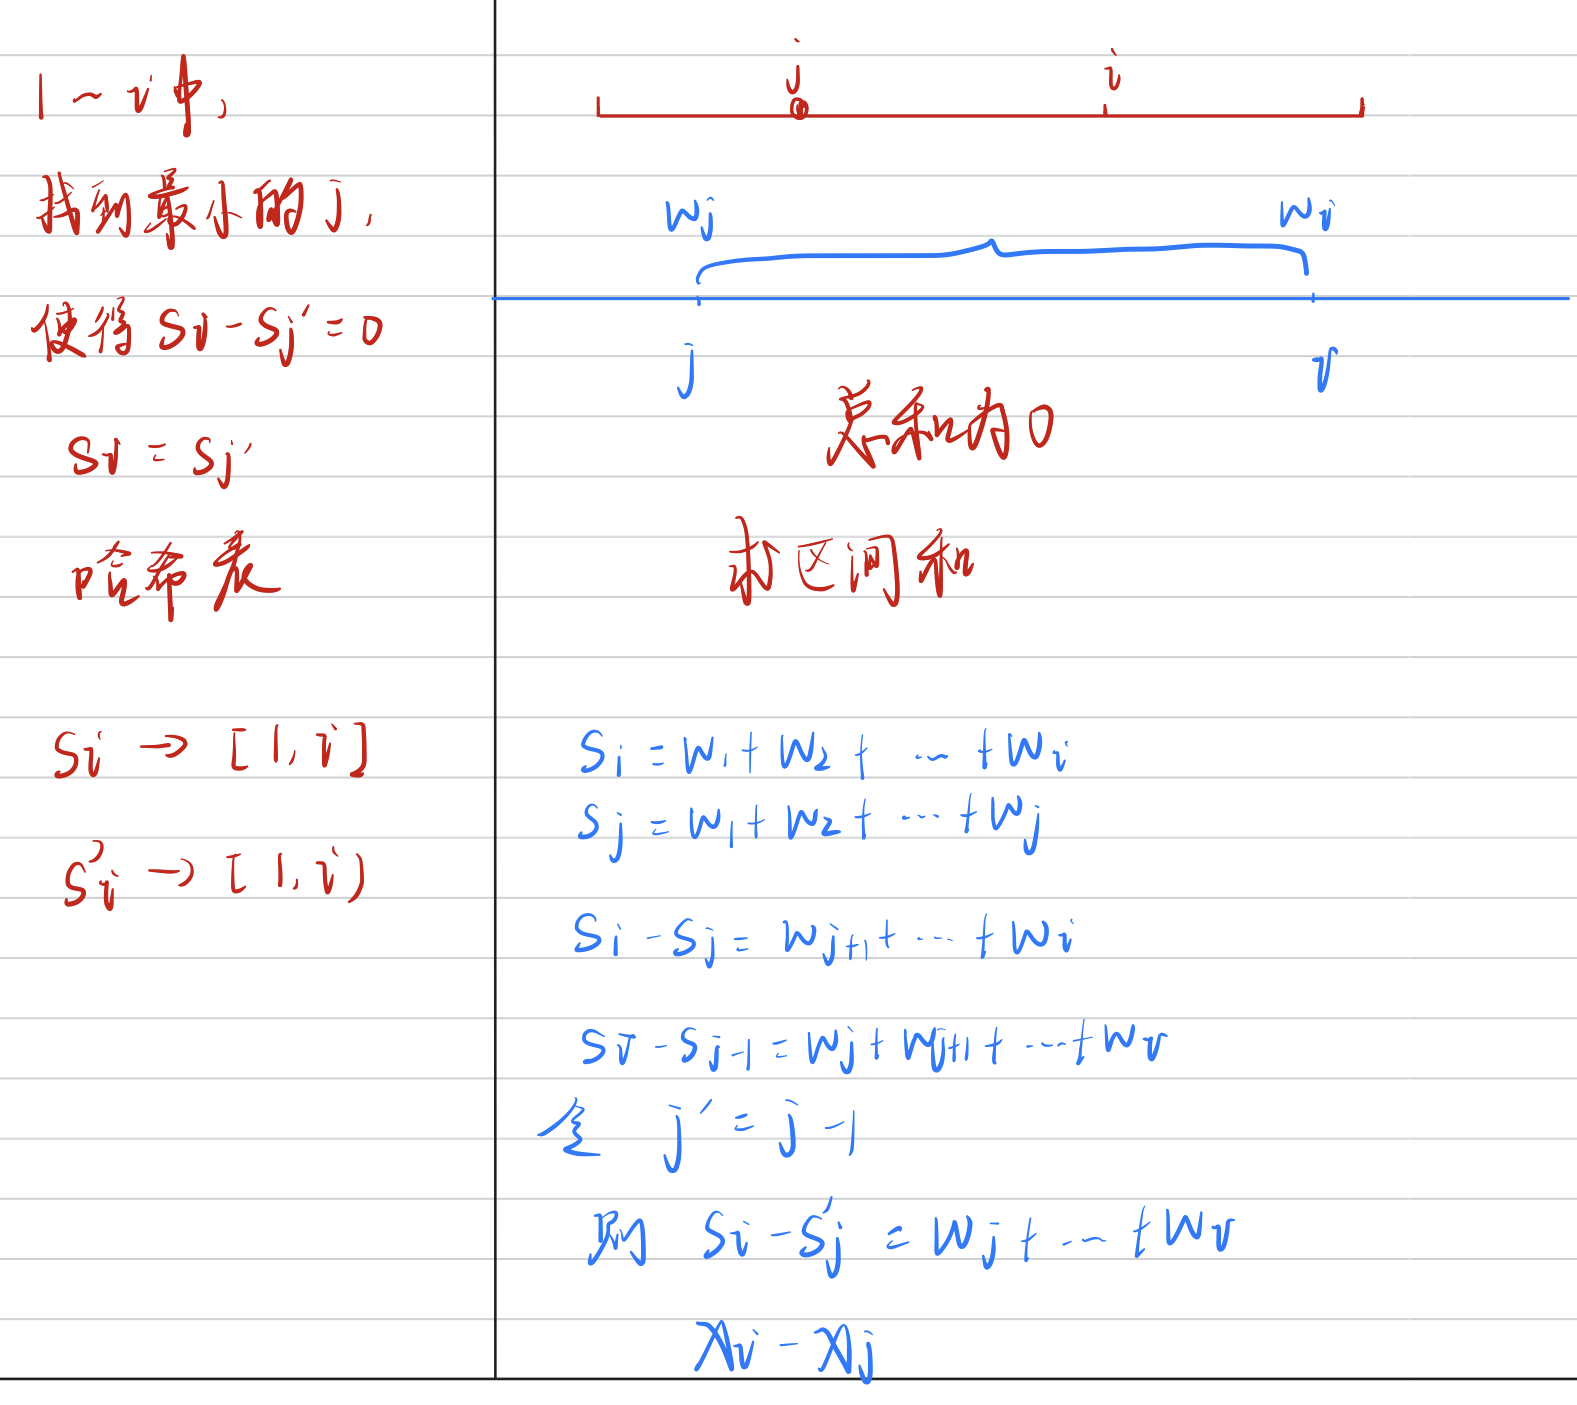 1 ~ i 中,
找到最小的 j,
使得 Si - Sj' = 0
Si = Sj'
哈希表
Si → [1, i]
S'i → [1, i)
j i
Wj Wi
j i
总和为0
求区间和
Si = W1 + W2 + ... + Wi
Sj = W1 + W2 + ... + Wj
Si - Sj = Wj+1 + ... + Wi
Si - Sj-1 = Wj + Wj+1 + ... + Wi
令 j' = j - 1
则 Si - S'j = Wj + ... + Wi
Xi - Xj